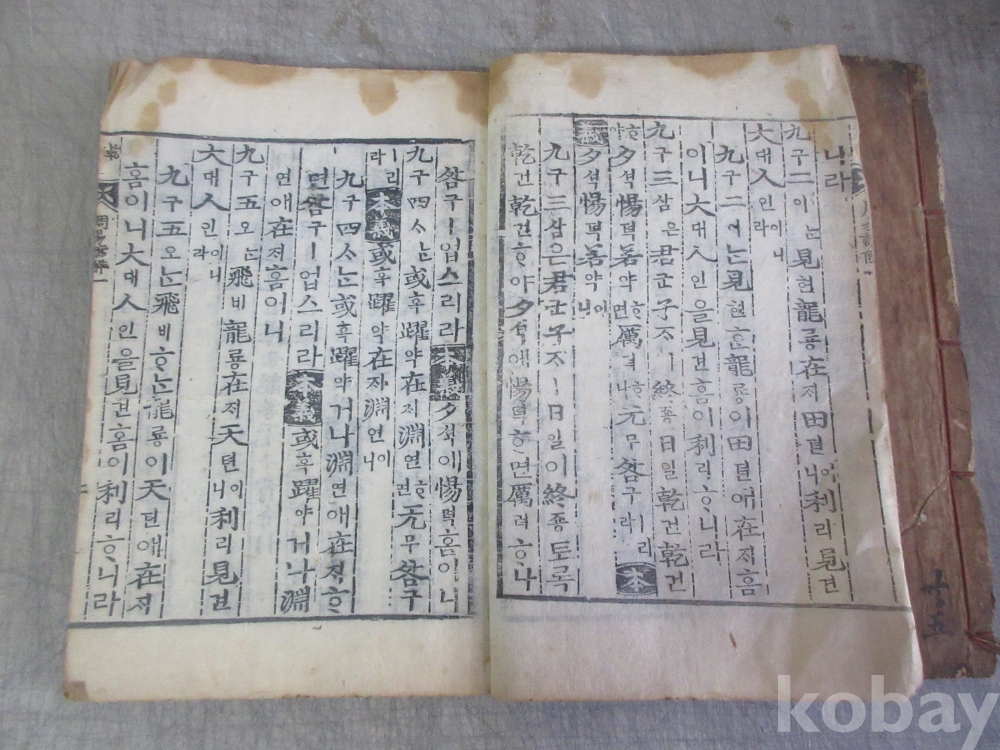 나라
九구二이ᄂᆞᆫ見현龍룡在ᄌᆡ田뎐이니利리見견
大대人인이니라
九구二이ᄂᆞᆫ見현ᄒᆞᆫ龍룡이田뎐애在ᄌᆡ홈
이니大대人인을見견홈이利리ᄒᆞ니라
九구三삼은君군子ᄌᆞㅣ終죵日일乾건乾건
ᄒᆞ야夕셕惕텩若약ᄒᆞ면厲려ᄒᆞ나无무咎구ㅣ리라本
義夕셕惕텩若약이니
九구三삼은君군子ᄌᆞㅣ日일이終죵토록
乾건乾건ᄒᆞ야夕셕애惕텩ᄒᆞ면厲려ᄒᆞ나
咎구ㅣ업스리라本義夕셕이惕텩홈이니
九구四ᄉᆞᄂᆞᆫ或혹躍약在ᄌᆡ淵연ᄒᆞ면无무咎구
ㅣ리라本義或혹躍약在ᄌᆡ淵연이니
九구四ᄉᆞᄂᆞᆫ或혹躍약거나淵연애在ᄌᆡᄒᆞ
면咎구ㅣ업스리라本義或혹躍약거나淵
연애在ᄌᆡ홈이니
九구五오ᄂᆞᆫ飛비龍룡在ᄌᆡ天텬이니利리見견
大대人인이니라
九구五오ᄂᆞᆫ飛비ᄒᆞᄂᆞᆫ龍룡이天텬애在ᄌᆡ
홈이니大대人인을見견홈이利리ᄒᆞ니라
周易諺解一
十五
kobay